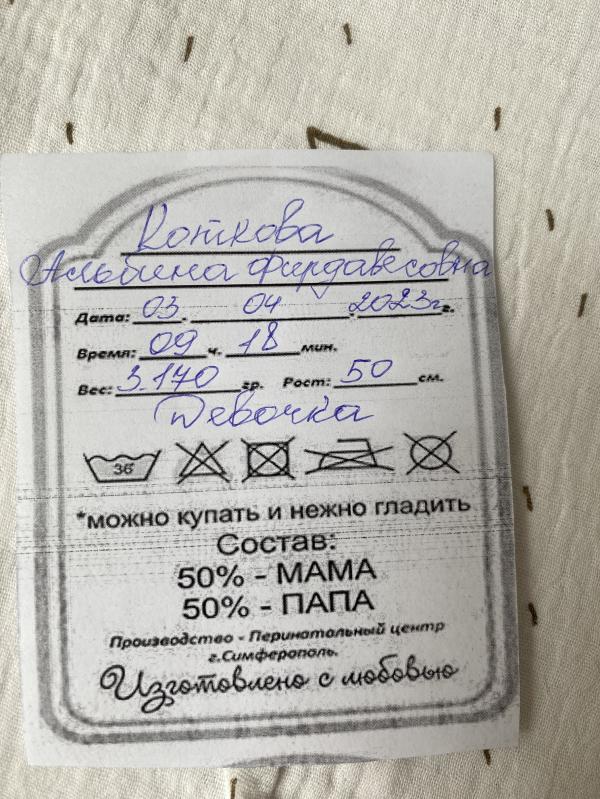 Коткова
Альбина Фирдавесовна
Дата: 03. 04 .2023г г.
Время: 09 ч. 18 мин.
Вес: 3.170 гр. Рост: 50 см.
Девочка
36°
*можно купать и нежно гладить
Состав:
50% - МАМА
50% - ПАПА
Производство - Перинатальный центр
г.Симферополь.
Изготовлено с любовью